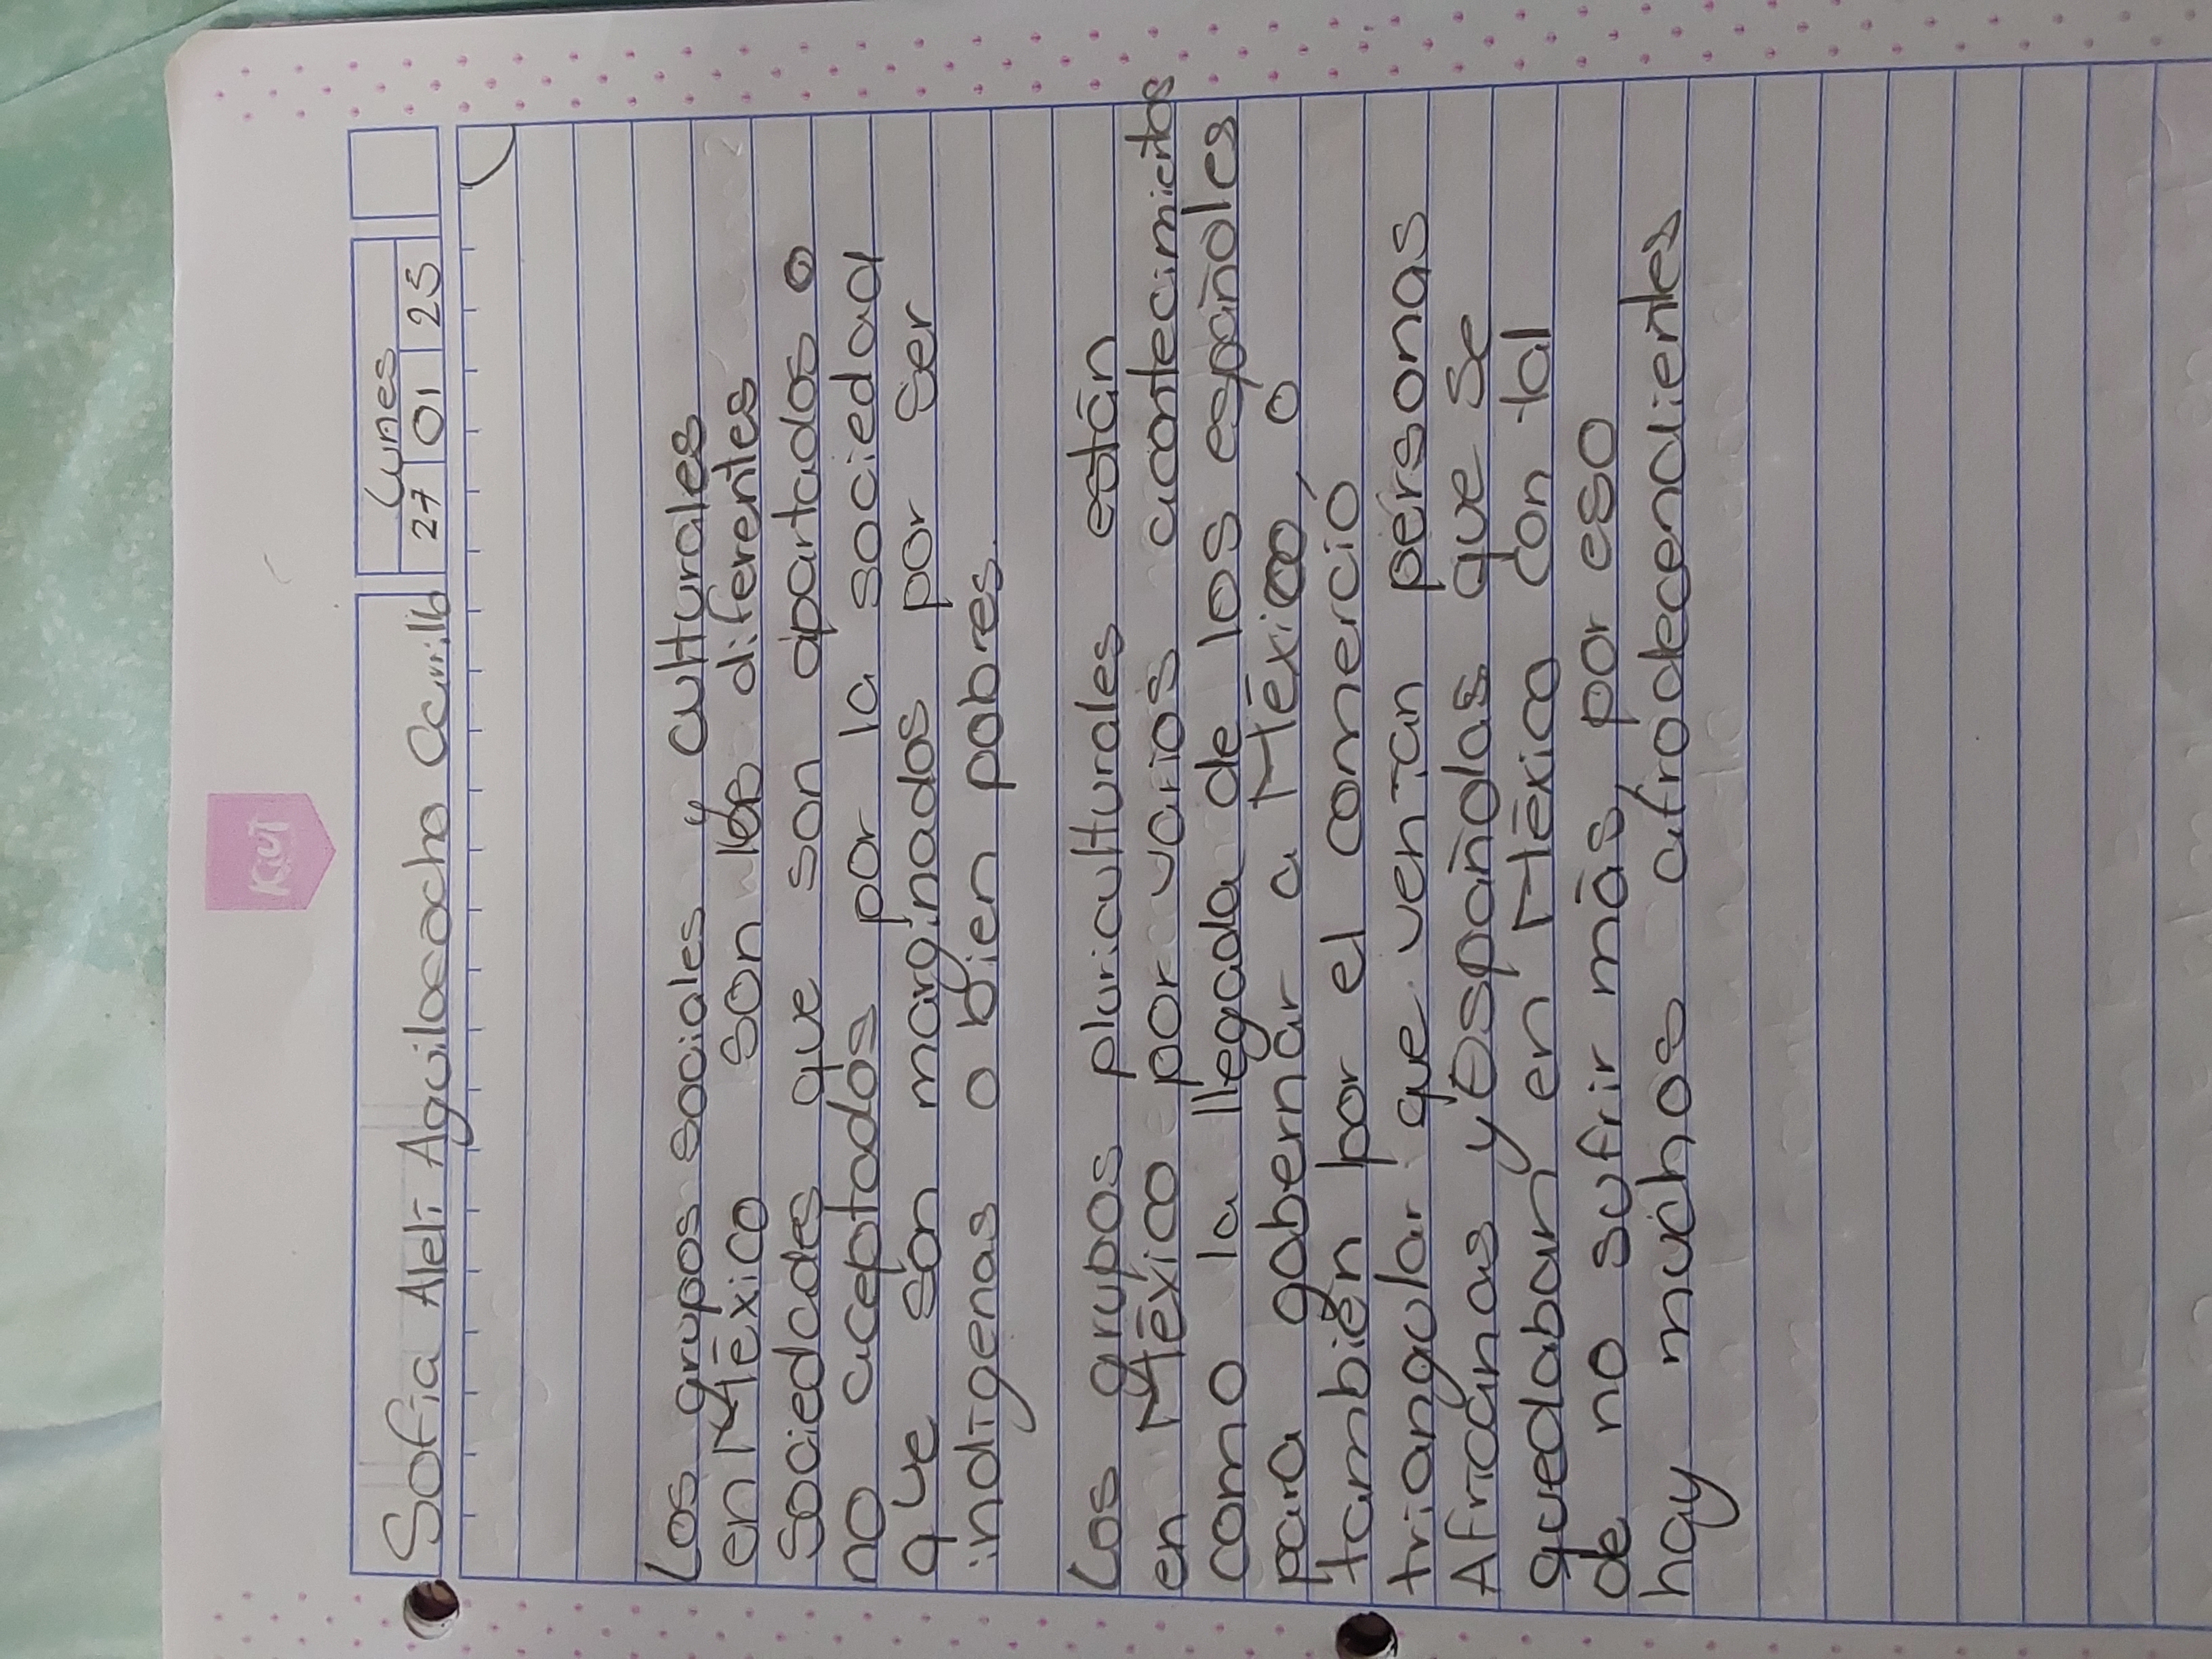 Kiut
Lunes
Sofía Aleli Aguilosocho Carrillo 27 01 25
Los grupos sociales y culturales
en México son los diferentes
sociedades que son apartados o
no aceptados por la sociedad
que son marginados por ser
indígenas o bien pobres.
Los grupos pluriculturales están
en México por varios acontecimietos
como la llegada de los españoles
para gobernar a México, o
también por el comerció
triangular que venían personas
Africanas y Españolas que se
quedaban en México con tal
de no sufrir más, por eso
hay muchos afrodecendientes